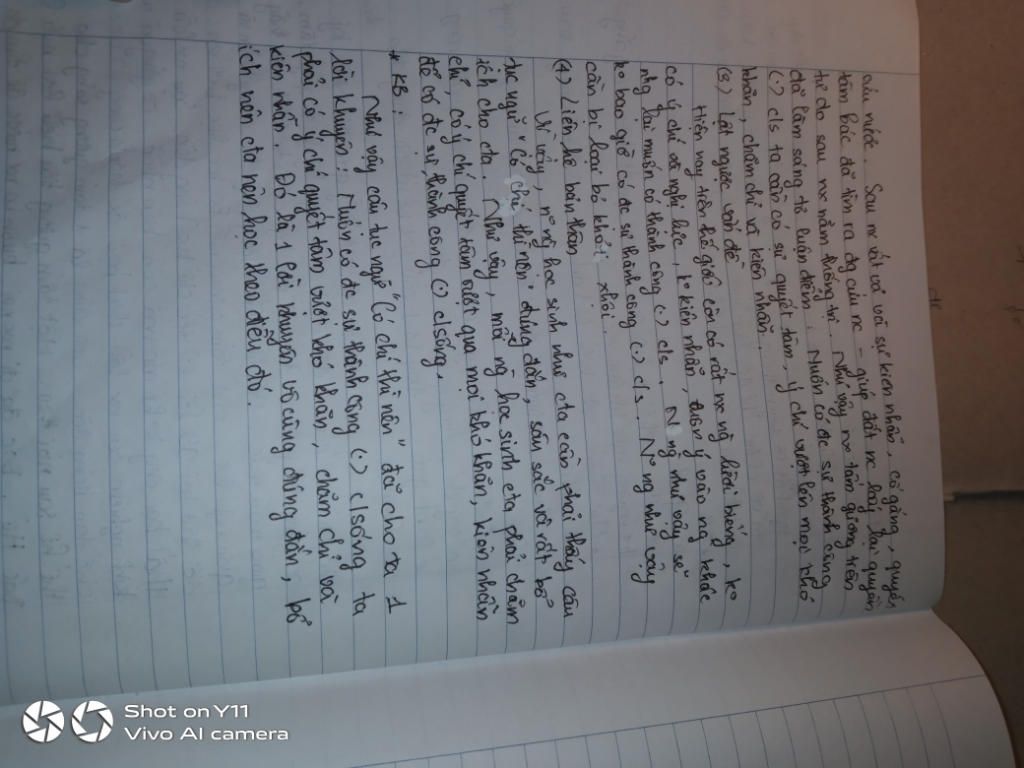 cứu nước. Sau nx vất vả và sự kiên nhẫn, cố gắng, quyết
tâm Bác đã tìm ra đg cứu nc - giúp đất nc lấy lại quyền
tự do sau nc nằm thống trị. Như vậy nx tấm gương trên
đã làm sáng tỏ luận điểm: Muốn có đc sự thành công
(.) c/s ta cần có sự quyết tâm, ý chí vượt lên mọi khó
khăn, chăm chỉ và kiên nhẫn.
(3) Lật ngược vấn đề
Hiện nay trên thế giới còn có rất nx ng lười biếng, ko
có ý chí và nghị lực, ko kiên nhẫn, luôn ỷ vào ng khác
nhg lại muốn có thành công (.) c/s. N~ ng như vậy sẽ
ko bao giờ có đc sự thành công (.) c/s. N~ ng như vậy
cần bị loại bỏ khỏi xhội.
(4) Liên hệ bản thân
Vì vậy, n~ ng học sinh như cta cần phải thấy câu
tục ngữ "Có chí thì nên" đúng đắn, sâu sắc và rất bổ
ích cho cta. Như vậy, mỗi ng học sinh cta phải chăm
chỉ, có ý chí quyết tâm vượt qua mọi khó khăn, kiên nhẫn
để có đc sự thành công (.) c/sống.
* KB:
Như vậy câu tục ngữ "Có chí thì nên" đã cho ra 1
lời khuyên: Muốn có đc sự thành công (.) c/sống ta
phải có ý chí quyết tâm vượt khó khăn, chăm chỉ và
kiên nhẫn. Đó là 1 lời khuyên vô cùng đúng đắn, bổ
ích nên cta nên học theo điều đó.
Shot on Y11
Vivo AI camera